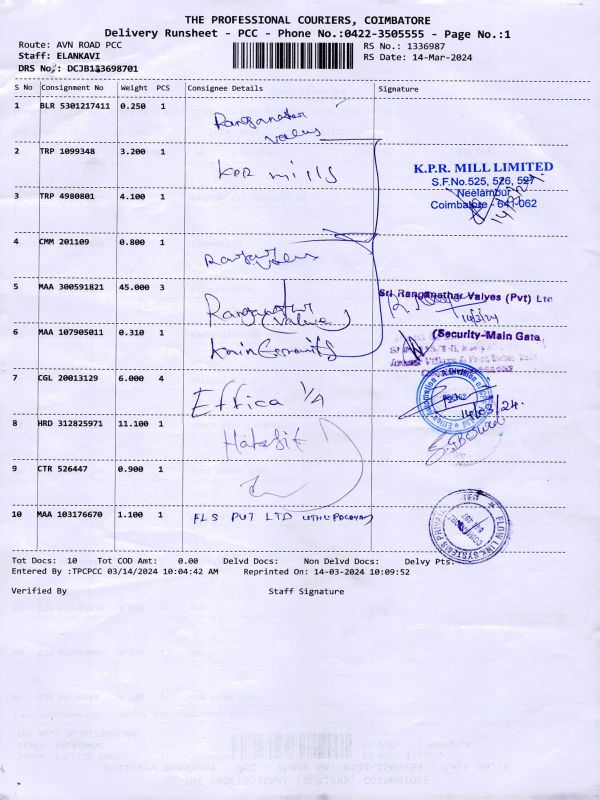 THE PROFESSIONAL COURIERS, COIMBATORE
Delivery Runsheet - PCC - Phone No.:0422-3505555 - Page No.:1
Route: AVN ROAD PCC
RS No.: 1336987
Staff: ELANKAVI
RS Date: 14-Mar-2024
DRS No.: DCJB113698701
S No Consignment No Weight PCS Consignee Details Signature
1 BLR 5301217411 0.250 1 Ranganather
valves
2 TRP 1099348 3.200 1 KPR mills
K.P.R. MILL LIMITED
S.F.No.525, 526, 527
Neelambur
Coimbatore - 641 062
3 TRP 4980801 4.100 1
4 CMM 201109 0.800 1
5 MAA 300591821 45.000 3 Ranganather
(valves)
Sri Ranganathar Valves (Pvt) Ltd
14/3/24
(Security-Main Gate
6 MAA 107905011 0.310 1
7 CGL 20013129 6.000 4 Effica 1/4
14/03/24.
8 HRD 312825971 11.100 1
9 CTR 526447 0.900 1
10 MAA 103176670 1.100 1 FLS PVT LTD
FLOW LINK SYSTEMS PRIVATE
Tot Docs: 10 Tot COD Amt: 0.00 Delvd Docs: Non Delvd Docs: Delvy Pts:
Entered By :TPCPCC 03/14/2024 10:04:42 AM Reprinted On: 14-03-2024 10:09:52
Verified By Staff Signature